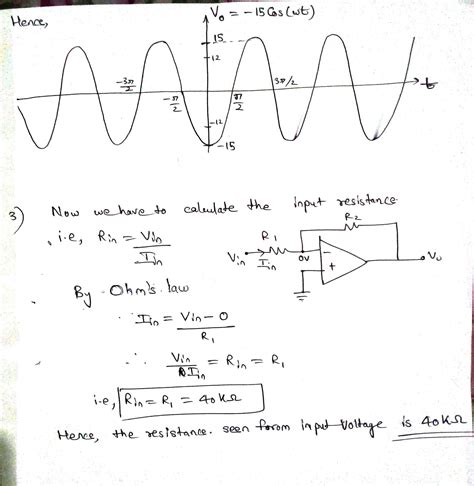 Hence,
V₀ = -15 Cos(ωt)
15
12
-3π/2
-π/2
π/2
3π/2
t
-12
-15
3) Now we have to calculate the input resistance.
i.e, Rin = Vin/Iin
R2
R1
Vin
Iin
0V
-
+
V₀
By Ohm's law
Iin = Vin-0/R1
∴ Vin/Iin = Rin = R1
i.e, Rin = R1 = 40KΩ
Hence, the resistance seen from input Voltage is 40KΩ